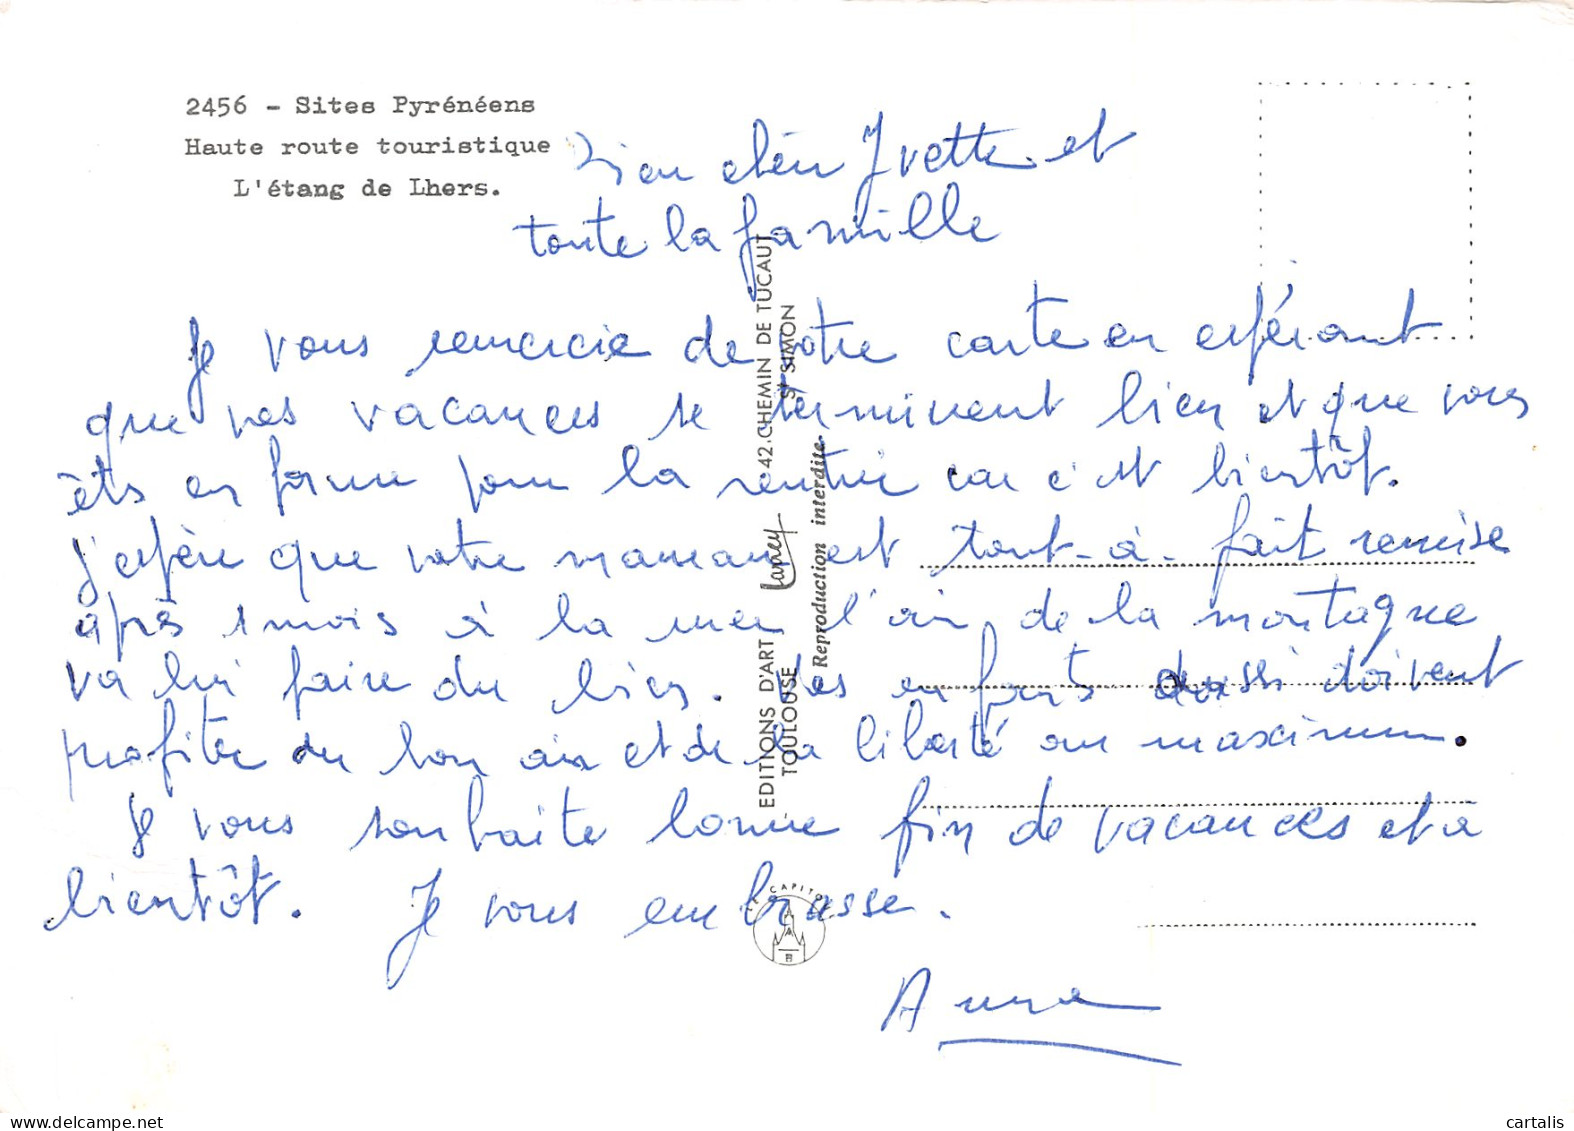 2456 - Sites Pyrénéens
Haute route touristique
L'étang de Lhers.
Bien chère Yvette et
toute la famille
Je vous remercie de votre carte en espérant
que vos vacances se terminent bien et que vous
êts en forme pour la rentrée car c'est bientôt.
J'espère que votre maman est tout-à-fait remise
après 1 mois à la mer l'air de la montagne
va lui faire du bien. Les enfants aussi doivent
profiter du bon air et de la liberté au maximum.
Je vous souhaite bonne fin de vacances et à
bientôt. Je vous embrasse.
Anna
EDITIONS D'ART Larrey 42, CHEMIN DE TUCAUT
TOULOUSE ST SIMON
Reproduction interdite.
CAPITOLE
cartalis